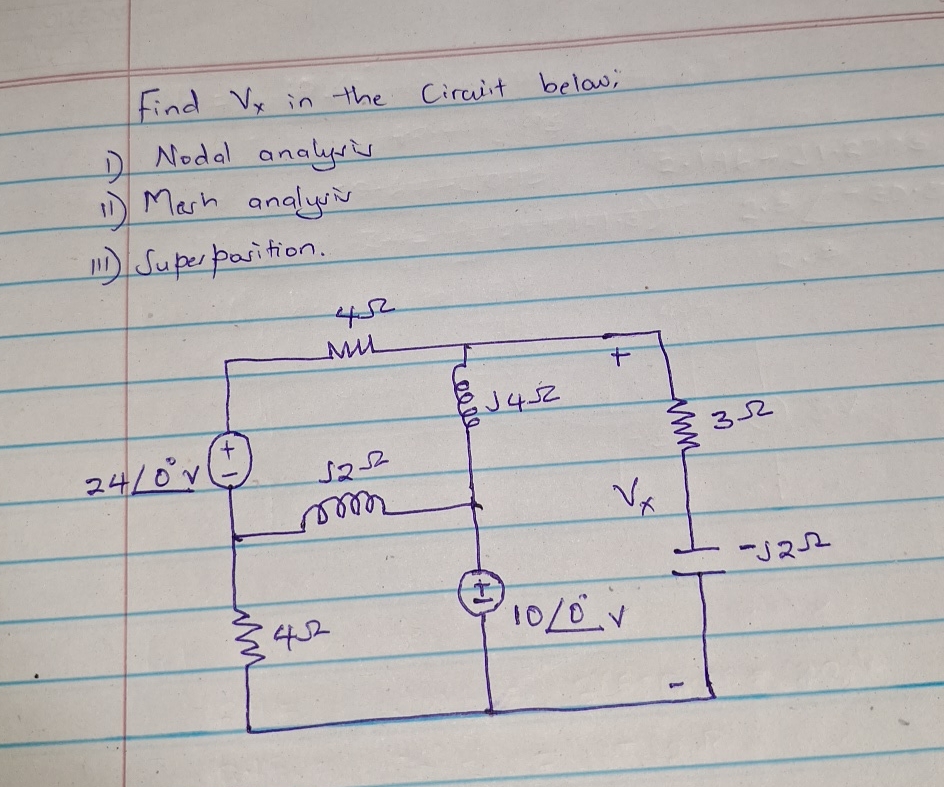 Find Vx in the Circuit below;
I) Nodal analysis
II) Mesh analysis
III) Superposition.
4Ω
+
J4Ω
3Ω
+
-
24/0° V
J2Ω
Vx
-J2Ω
±
10/0° V
4Ω
-